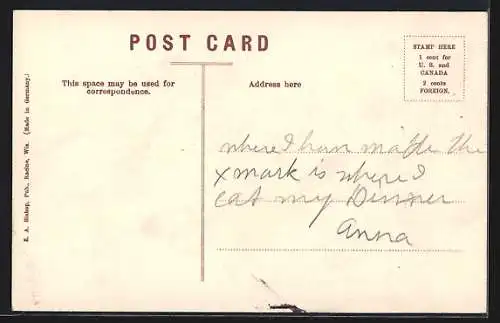 POST CARD
STAMP HERE
1 cent for
U. S. and
CANADA
2 cents
FOREIGN.
This space may be used for
correspondence.
Address here
where I have made the
x mark is where I
eat my Dinner
Anna
E. A. Bishop, Pub., Racine, Wis. (Made in Germany.)